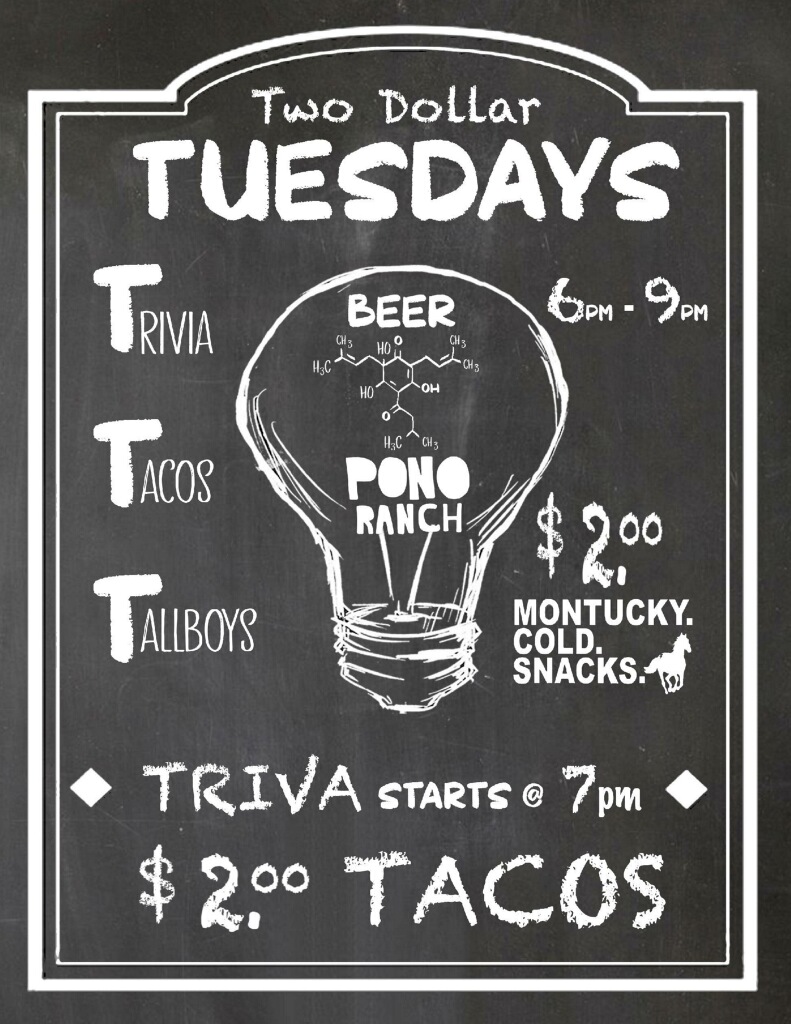 Two Dollar
TUESDAYS
TRIVIA
6PM - 9PM
BEER
CH3
HO
O
CH3
H3C
CH3
HO
OH
O
H3C
CH3
PONO
RANCH
TACOS
$2.00
TALLBOYS
MONTUCKY.
COLD.
SNACKS.
TRIVA STARTS @ 7pm
$2.00 TACOS